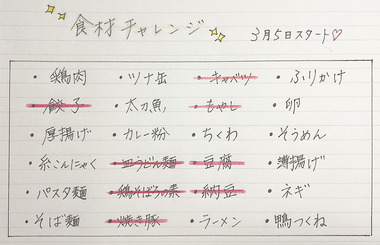 食材チャレンジ
3月5日スタート♡
・鶏肉 ・ツナ缶 ・キャベツ ・ふりかけ
・餃子 ・太刀魚 ・もやし ・卵
・厚揚げ ・カレー粉 ・ちくわ ・そうめん
・糸こんにゃく ・皿うどん麺 ・豆腐 ・薄揚げ
・パスタ麺 ・鶏そぼろの素 ・納豆 ・ネギ
・そば麺 ・焼き豚 ・ラーメン ・鴨つくね